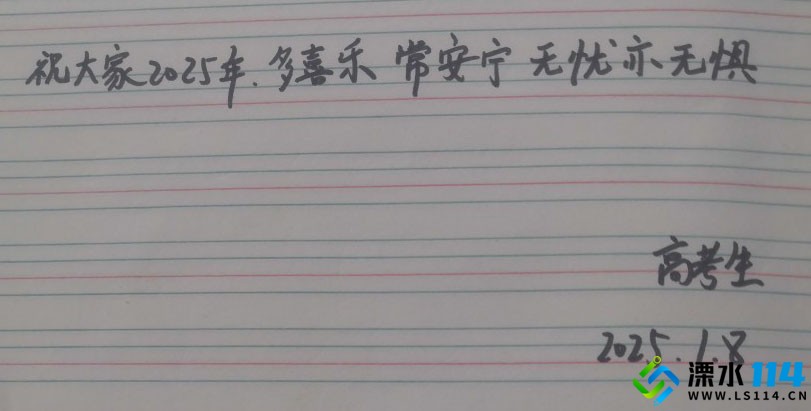 祝大家2025年.多喜乐 常安宁 无忧亦无惧
高考生
2025.1.8
溧水114
WWW.LS114.CN